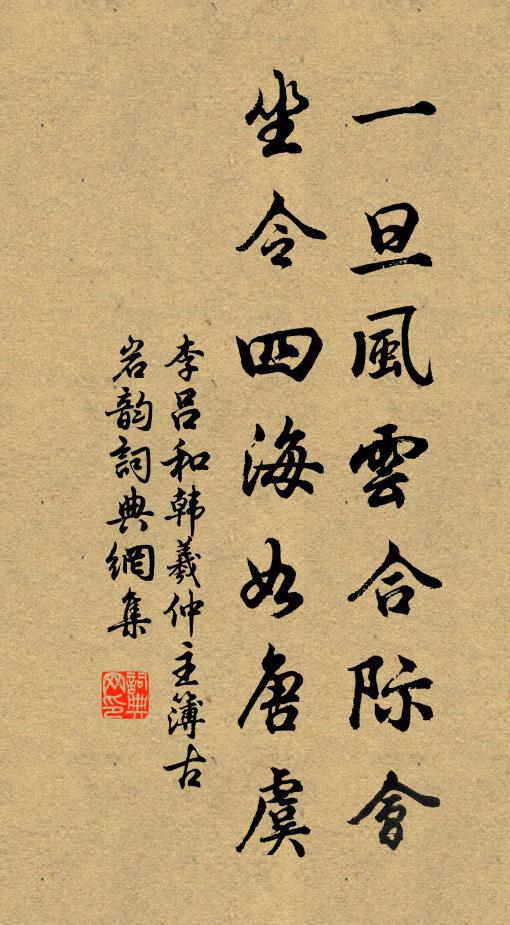 一旦風雲合际會
坐令四海如唐虞
李吕和韩羲仲主簿古
岩韵詞典網集
詞典网印